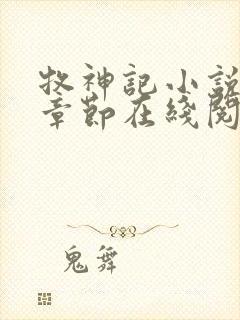 牧神記小説
章節在綫閱
鬼舞